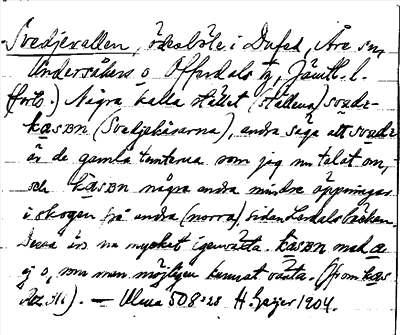 Svedjevallen, ödesböle i Dufed, Åre sn,
Undersåkers o. Offerdals tg, Jämtl. l.
(forts.) Några kalla stället (ställena) svedɛ-
kasɛn (Svedjekåsarna), andra säga att
är de gamla som jag nu talat om,
och kasɛn några andra mindre öppningar
i skogen på andra (norra) sidan
Dessa äro nu mycket igenväxta. kasɛn med a
ej o, som man möjligen kunnat vänta. (jfr om kas
). — Ulma 508:28 H. Geijer 1904.